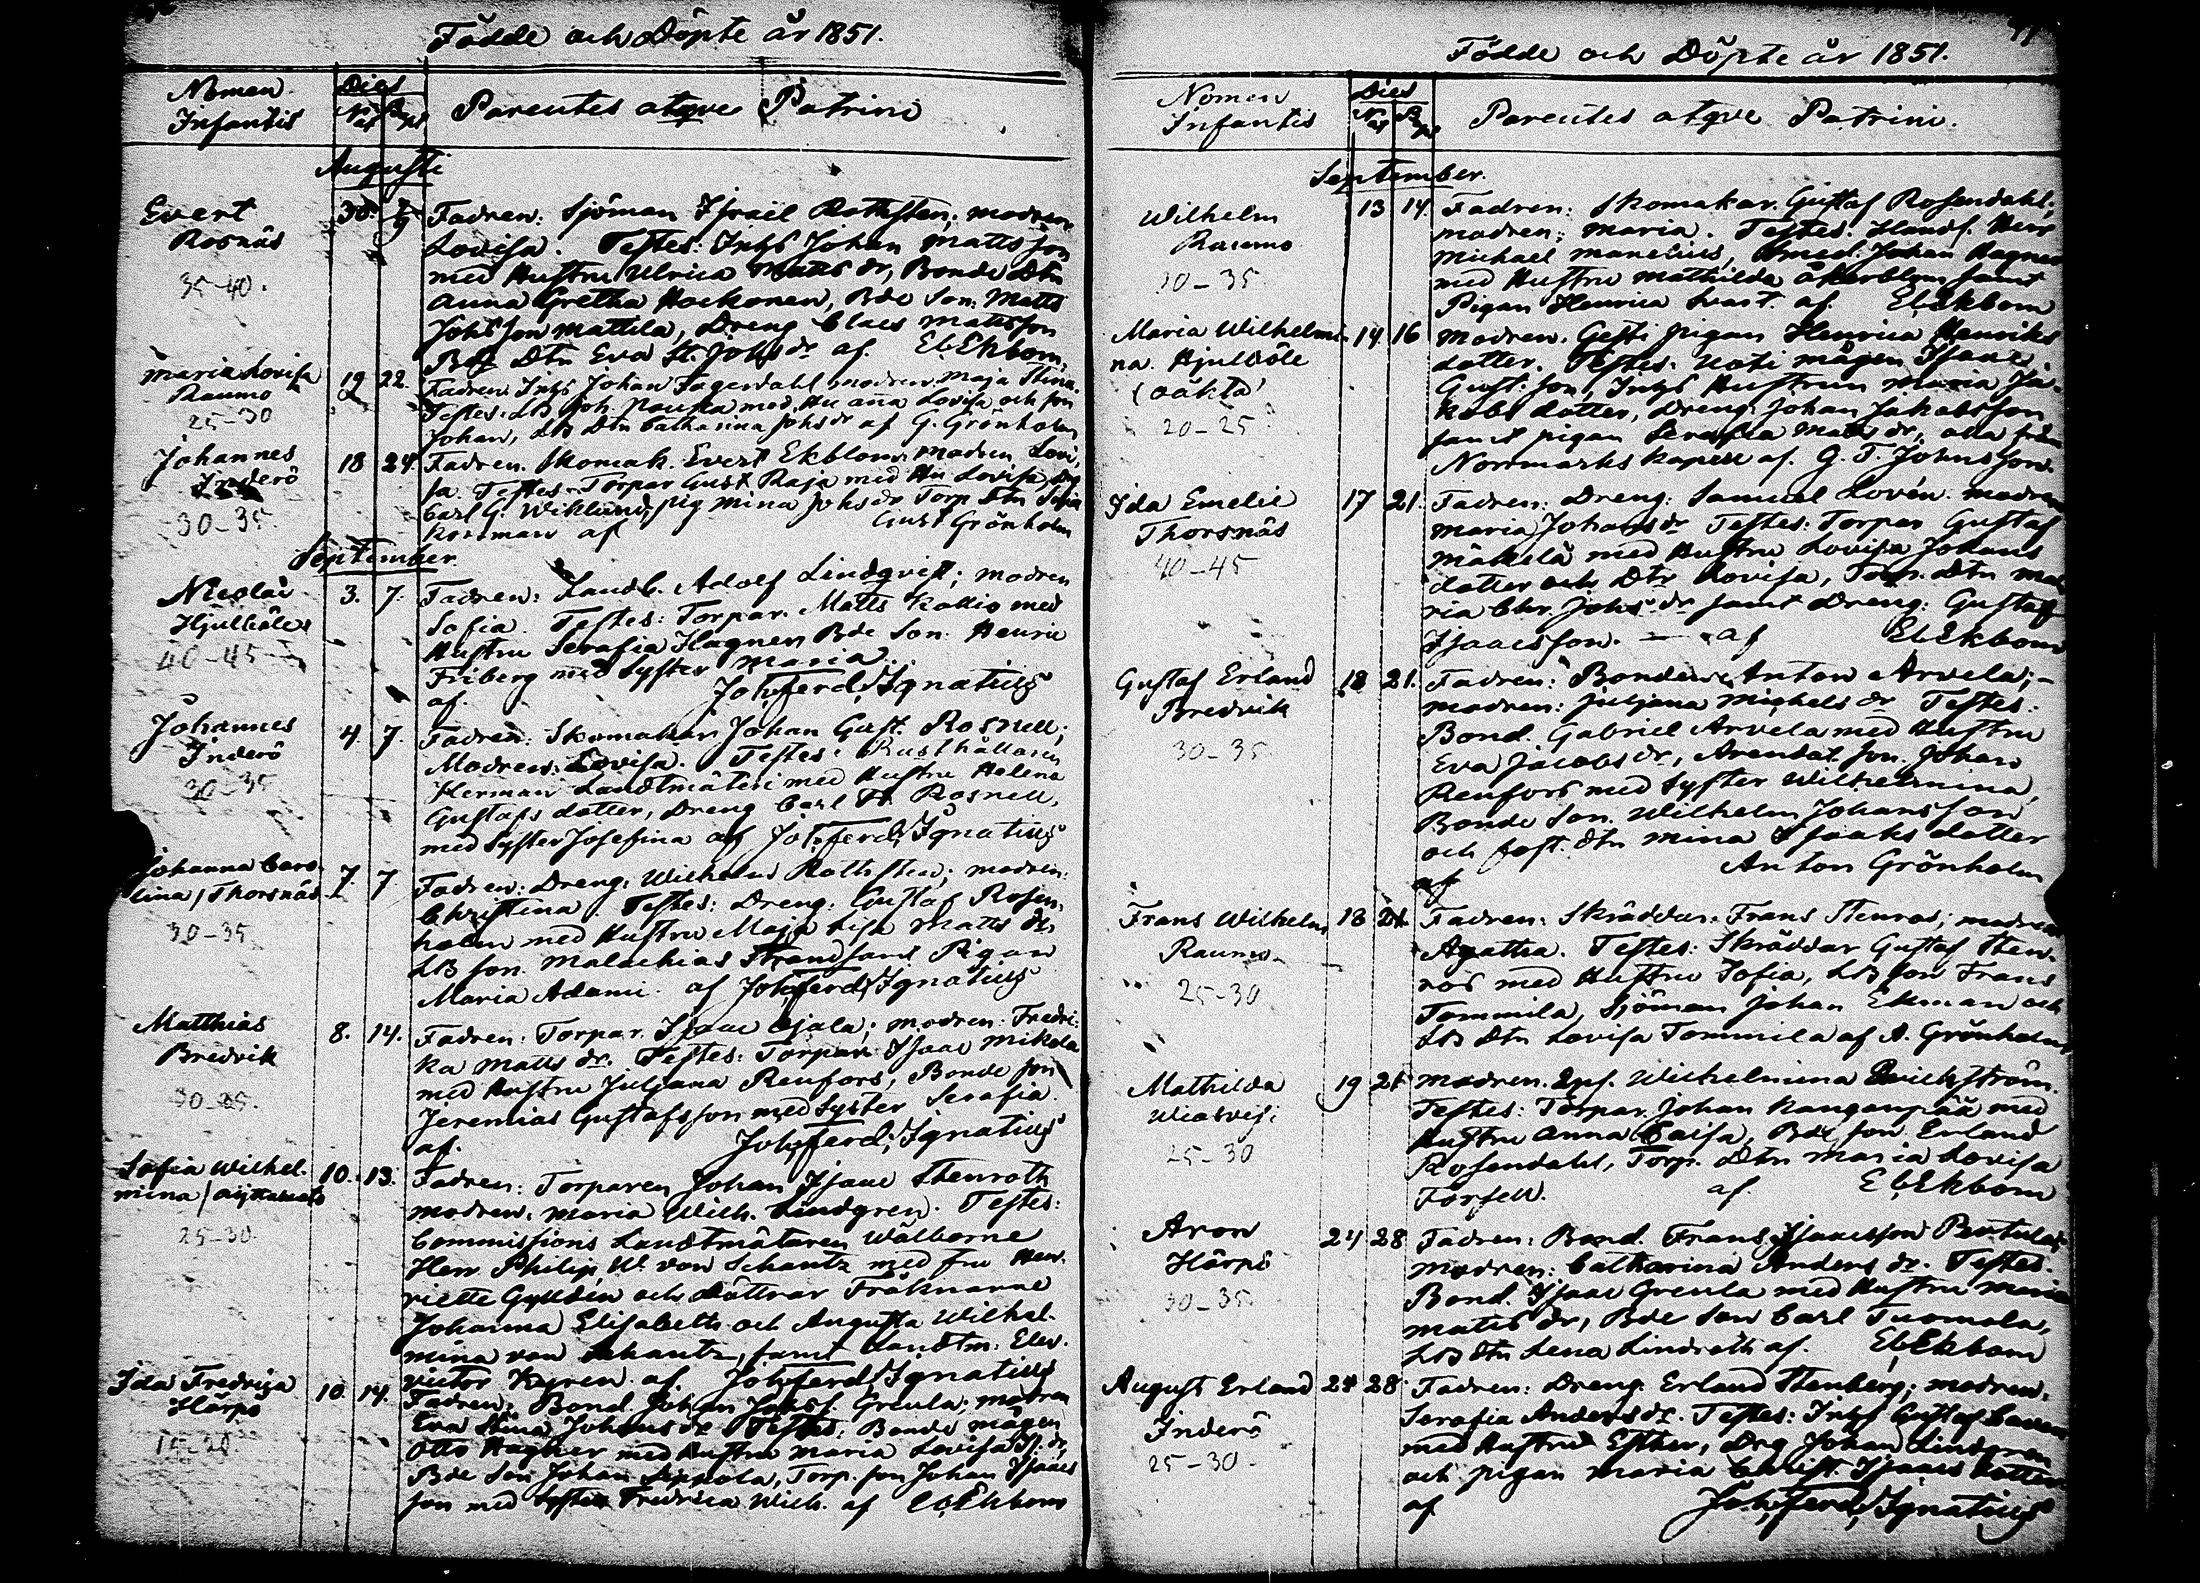 Födde och Döpte år 1851.
Nomen Infantis
Dies
Nat Bapt
Parentes atqve Patrini
Augusti
Evert
Rosnäs
35-40.
30. 5/9
Fadren: Sjöman Israël Rothsten; modren
Lovisa. Testes: Inhs Johan Mattsson
med Hustru Ulrica Matts dr, Bonde Dtn
Anna Gretha Hockonen, Bde Son: Matts
Johsson Mattila, Dreng Claes Mattsson
Bde Dtn Eva St. Johs dr af. E. Ekbom
Maria Lovisa
Raumo
25-30
19 22.
Fadren Inhs Johan Fagerdahl modren Maja Stina.
Testes: LB Joh. Pauka med Hu Anna Lovisa och son
Johan, LB Dtn Catharina Johs dr af G. Grönholm
Johannes
Inderö
30-35
18 24.
Fadren. Skomak. Evert Ekblom modren Lovi,
sa. Testes. Torpar Gust Raja med Hu Lovisa, Drg
Carl G. Wiklund, pig Mina Johs dr Torp Dtn Sofia
Korsman af Gust Grönholm
September.
Nicolai
Hjulböle
40-45
3. 7.
Fadren: Landb. Adolf Lindqvist; modren
Sofia. Testes: Torpar. Matts Kallio med
Hustru Serafia Hagner Bde Son. Henric
Friberg med Syster Maria.
af. Joh. Ferd. Ignatius
Johannes
Inderö
30-35
4. 7.
Fadren: Skomakar Johan Gust. Rosnell;
Modren: Lovisa. Testes: Rusthållaren
Herman Landtmäteri med Hustru Helena
Gustafs dotter, Dreng Carl Fr. Rosnell,
med Syster Josefina af Joh. Ferd. Ignatius
Johanna Caro
lina / Thorsnäs
30-35
7. 7
Fadren: Dreng: Wilhelm Rothsten; modren:
Christina. Testes: Dreng: Gustaf Rosen,
holm med Hustru Maja Lisa Matts dr,
LB son. Malachias Strand samt Pigan
Maria Adami. af Joh. Ferd. Ignatius
Matthias
Bredvik
30-35.
8. 14.
Fadren: Torpar. Isaac Ojala; modren: Fredri-
ka Matts dr. Testes: Torpar Isaac Mikola
med Hustru Juljana Renfors, Bonde son
Jeremias Gustafsson med Syster Serafia.
af. Joh. Ferd. Ignatius
Sofia Wilhel.
mina /
25-30
10. 13.
Fadren: Torparen Johan Isaac Stenroth
modren: Maria Wilh. Lindgren. Testes:
Commissions Landtmätaren Wälborne
Herr Philip W. von Schantz med fru Hen.
riette Gyldén och Döttrar Fröknarne
Johanna Elisabeth och Augusta Wilhel.
mina von Schantz, samt Landtm: Elev.
Victor Kyren. af Joh. Ferd. Ignatius
Ida Fredrica
Härpö
15-20
10. 14.
Fadren: Bond. Johan Johss. Greula; modren
Eva Stina Johans dr Testes: Bonde mågen
Otto Hagner med Hustru Maria Lovisa Is. dr,
Bde Son Johan Seppola, Torp. son Johan Isaacs
son med Syster Fredrica Wilh. af E. Ekbom
Födde och Döpte år 1851.
Nomen Infantis
Dies
Nat Bapt
Parentes atqve Patrini.
September.
Wilhelm
Raumo
30-35
13 14.
Fadren: Skomakar. Gustaf Rosendahl,
modren: Maria. Testes. Handl. Herr
Michael Manelius, Smed: Johan Hagner
med Hustru Mathilda Åkerblom samt
Pigan Henrica Svart. af. E. Ekbom
Maria Wilhelmi
na. Hjulböle
(oäkta)
20-25
14. 16
Modren. Gesti pigan Henrica Henriks
dotter. Testes. Noti mågen Isaac
Gust. son, Inhs Hustrun Maria Ja-
kobs dotter, Dreng Johan Jakobsson
samt pigan Serafia Matts dr, alla från
Norrmarks kapell af. G. T. Johnsson
Ida Emelie
Thorsnäs
40-45
17 21.
Fadren: Dreng: Samuel Lovén. modren
Maria Johans dr Testes: Torpar Gustaf
Mäkelä med Hustru Lovisa Johans
dotter och Dtr Lovisa, Torp. Dtn Ma
ria Chr. Johs dr samt Dreng: Gustaf
Isaacsson. af E. Ekbom
Gustaf Erland
Bredvik
30-35
18 21.
Fadren: Bonden Anton Arvela;
modren: Juljana Michels dr Testes:
Bond. Gabriel Arvela med Hustru
Eva Jacobs dr, Arendat. son. Johan
Renfors med Syster Wilhelmina,
Bonde Son. Wilhelm Johansson
och fost. dtn Mina Isaaks dotter
af Anton Grönholm
Frans Wilhelm
Raumo
25-30
18 21.
Fadren: Skräddar: Frans Stenros; modren
Agatha. Testes: Skräddar Gustaf Sten-
ros med Hustru Sofia, LB son Frans
Tommila, Sjöman Johan Ekman och
LB Dtn Lovisa Tommila af A. Grönholm
Mathilda
25-30
19 21
Modren. Inhs. Wilhelmina
Testes: Torpar. Johan Kanganpää med
Hustru Anna Caisa, Bde son Erland
Rosendahl, Torp. Dtn Maria Lovisa
Forsell. af. E. Ekbom
Aron
Härpö
30-35
24 28
Fadren: Bond. Frans Isaacsson
Modren: Catharina Anders dr. Testes.
Bond. Isaac Greula med Hustru Maria
Matts dr, Bde Son Carl Tuomola,
LB dtn Lena Lindroth af. E. Ekbom
August Erland
Inderö
25-30
24 28
Fadren: Dreng Erland Stenberg; modren.
Serafia Anders dr. Testes: Inhs Gustaf
med Hustru Esther, Drg Johan Lindgren
och pigan Maria Christ. Isaacs dotter
af Joh. Ferd. Ignatius